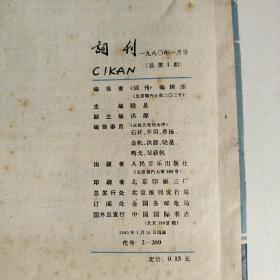 詞刊
一九八〇年一月号
CIKAN
(总第1期)
编辑者 《词刊》编辑部
(北京朝内大街二〇三号)
主编 晓星
副主编 洪源
编辑委员 (以姓氏笔划为序)
石祥、乔羽、希扬、
金帆、洪源、晓星、
鸣戈、邹荻帆
出版者 人民音乐出版社
(北京朝内大街166号)
印刷者 北京印刷三厂
总发行处 北京报刊发行局
订阅处 全国各邮电局
国外总发行 中国国际书店
(北京399信箱)
1980年1月15日出版
代号：2—260
定价：0.15元